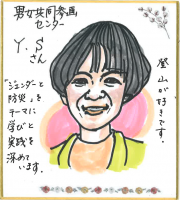 男女共同参画
センター
Y.Sさん
登山が好きです。
「ジェンダーと
防災」を
テーマに
学びと
実践を
深めて
います。